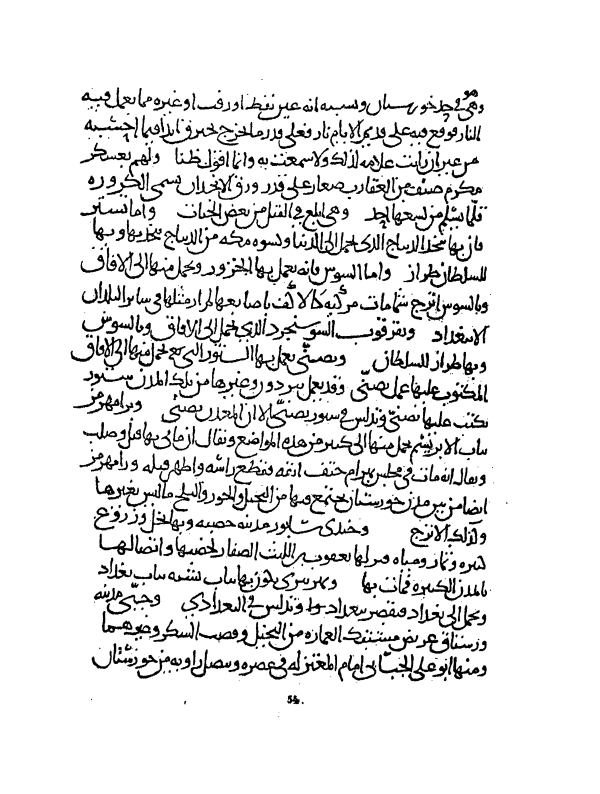 وهي في حد خورستان ونسبه انه عين نفط او زفت او غيره مما يعمل فيه
النار فوقع فيه على قديم الايام نار فعلى قدر ما اخرج يحترق ابدا فيما احسبه
من غير ان رايت علامه لذلك ولا سمعت به وانما اقول ظنا ولهم بعسكر
مكرم صنف من العقارب صغار على قدر ورق الانجدان يسمى الكروره
قلما يسلم من لسعها احد وهي ابلغ في القتل من بعض الحيات واما تستر
فان بها يتخذ الديباج الذي يحمل الى الدنيا وكسوه مكه من الديباج يتخذ بها وبها
للسلطان طراز واما السوس فانه يعمل بها الخزوز ويحمل منها الى الافاق
وبالسوس اترج شمامات مركبه كالاكف باصابعها لم ار مثلها في ساير البلدان
الا ببغداد وبقرقوب السوسنجرد الذي يحمل الى الافاق وبالسوس
وبها طراز للسلطان وبصنى يعمل بها الستور التي تحمل منها الى الافاق
المكتوب عليها عمل بصنى وقد يعمل ببردون وغيرها من تلك المدن ستور
يكتب عليها بصنى وتدلس في ستور بصنى الا ان المعدن بصنى وبرامهرمز
ثياب الابريسم يحمل منها الى كثير من هذه المواضع ويقال ان ماني بها قتل وصلب
ويقال انه مات في محبس بهرام حتف انفه فقطع راسه واظهر قتله ورامهرمز
ايضا من بين مدن خورستان يجتمع فيها من النخيل والجوز والثلج ما ليس بغيرها
وكذلك الاترج وجندي شابور مدينه خصبه وبها نخل وزروع
كثيره وثمار ومياه نزلها يعقوب بن الليث الصفار لخصبها واتصالها
بالمدن الكثيره فمات بها وبنهر تيرى يكون بها ثياب تشبه ثياب بغداد
ويحمل الى بغداد فيقصر ببغداد وتدلس في البغدادي وجبى مدينه
ورستاق عريض مشتبك العماره من النخيل وقصب السكر وغيرهما
ومنها ابو على الجبائى امام المعتزله في عصره ويتصل زاويه من خورستان
54.